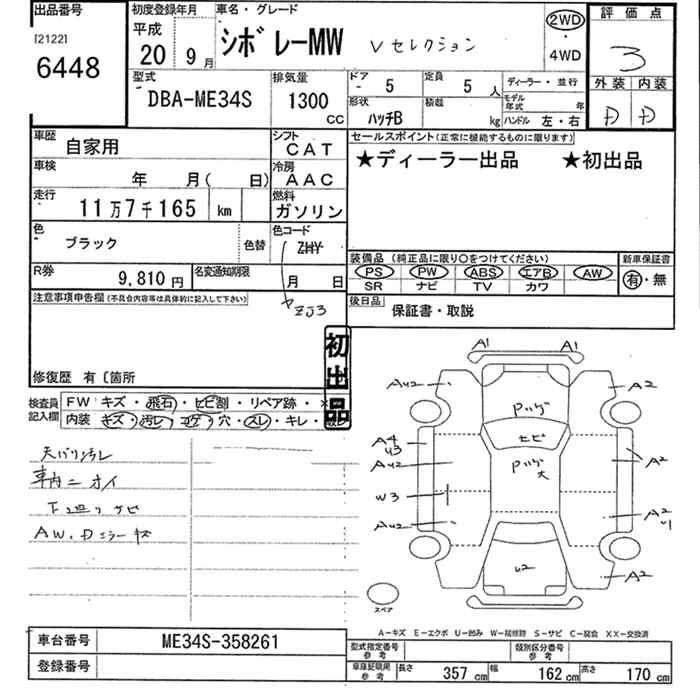 出品番号
[2122]
6448
初度登録年月
平成
20 9月
車名・グレード
シボレーMW Vセレクション
2WD
・
4WD
評価点
3
外装 内装
D D
型式
DBA-ME34S
排気量
1300
CC
ドア
5
定員
5人
ディーラー・並行
形状
ハッチB
積載
kg
モデル年式
年
ハンドル 左・右
車歴
自家用
シフト
CAT
車検
年 月( 日)
冷房
AAC
走行
11万7千165 km
燃料
ガソリン
色
ブラック
色替
色コード
ZHY
ZJ3
R券
9,810円
名変通知期限
月 日
セールスポイント(正常に機能するものに限ります)
★ディーラー出品 ★初出品
装備品(純正品に限り○をつけてください)
PS PW ABS エアB AW
SR ナビ TV カワ
新車保証書
有・無
後日品
保証書・取説
注意事項申告欄(不具合内容等は具体的に記入して下さい)
修復歴 有〔箇所
初出品
検査員
記入欄
FW キズ・飛石・ヒビ割・リペア跡・×
内装 キズ・汚れ・コゲ・穴・スレ・キレ・
天バリ汚レ
車内ニオイ
下廻リサビ
AW.Dミラーキズ
A1 A1
AU2 A2
Pハゲ
ヒビ
A4
U3
AU2
Pハゲ
大
A2
W3
AU2
A2
U1
U2
A2
スペア
A-キズ E-エクボ U-凹み W-補修跡 S-サビ C-腐食 XX-交換済
車台番号
ME34S-358261
登録番号
型式指定番号
参考
類別区分番号
参考
車庫証明用
参考
長さ 357cm 幅 162cm 高さ 170cm